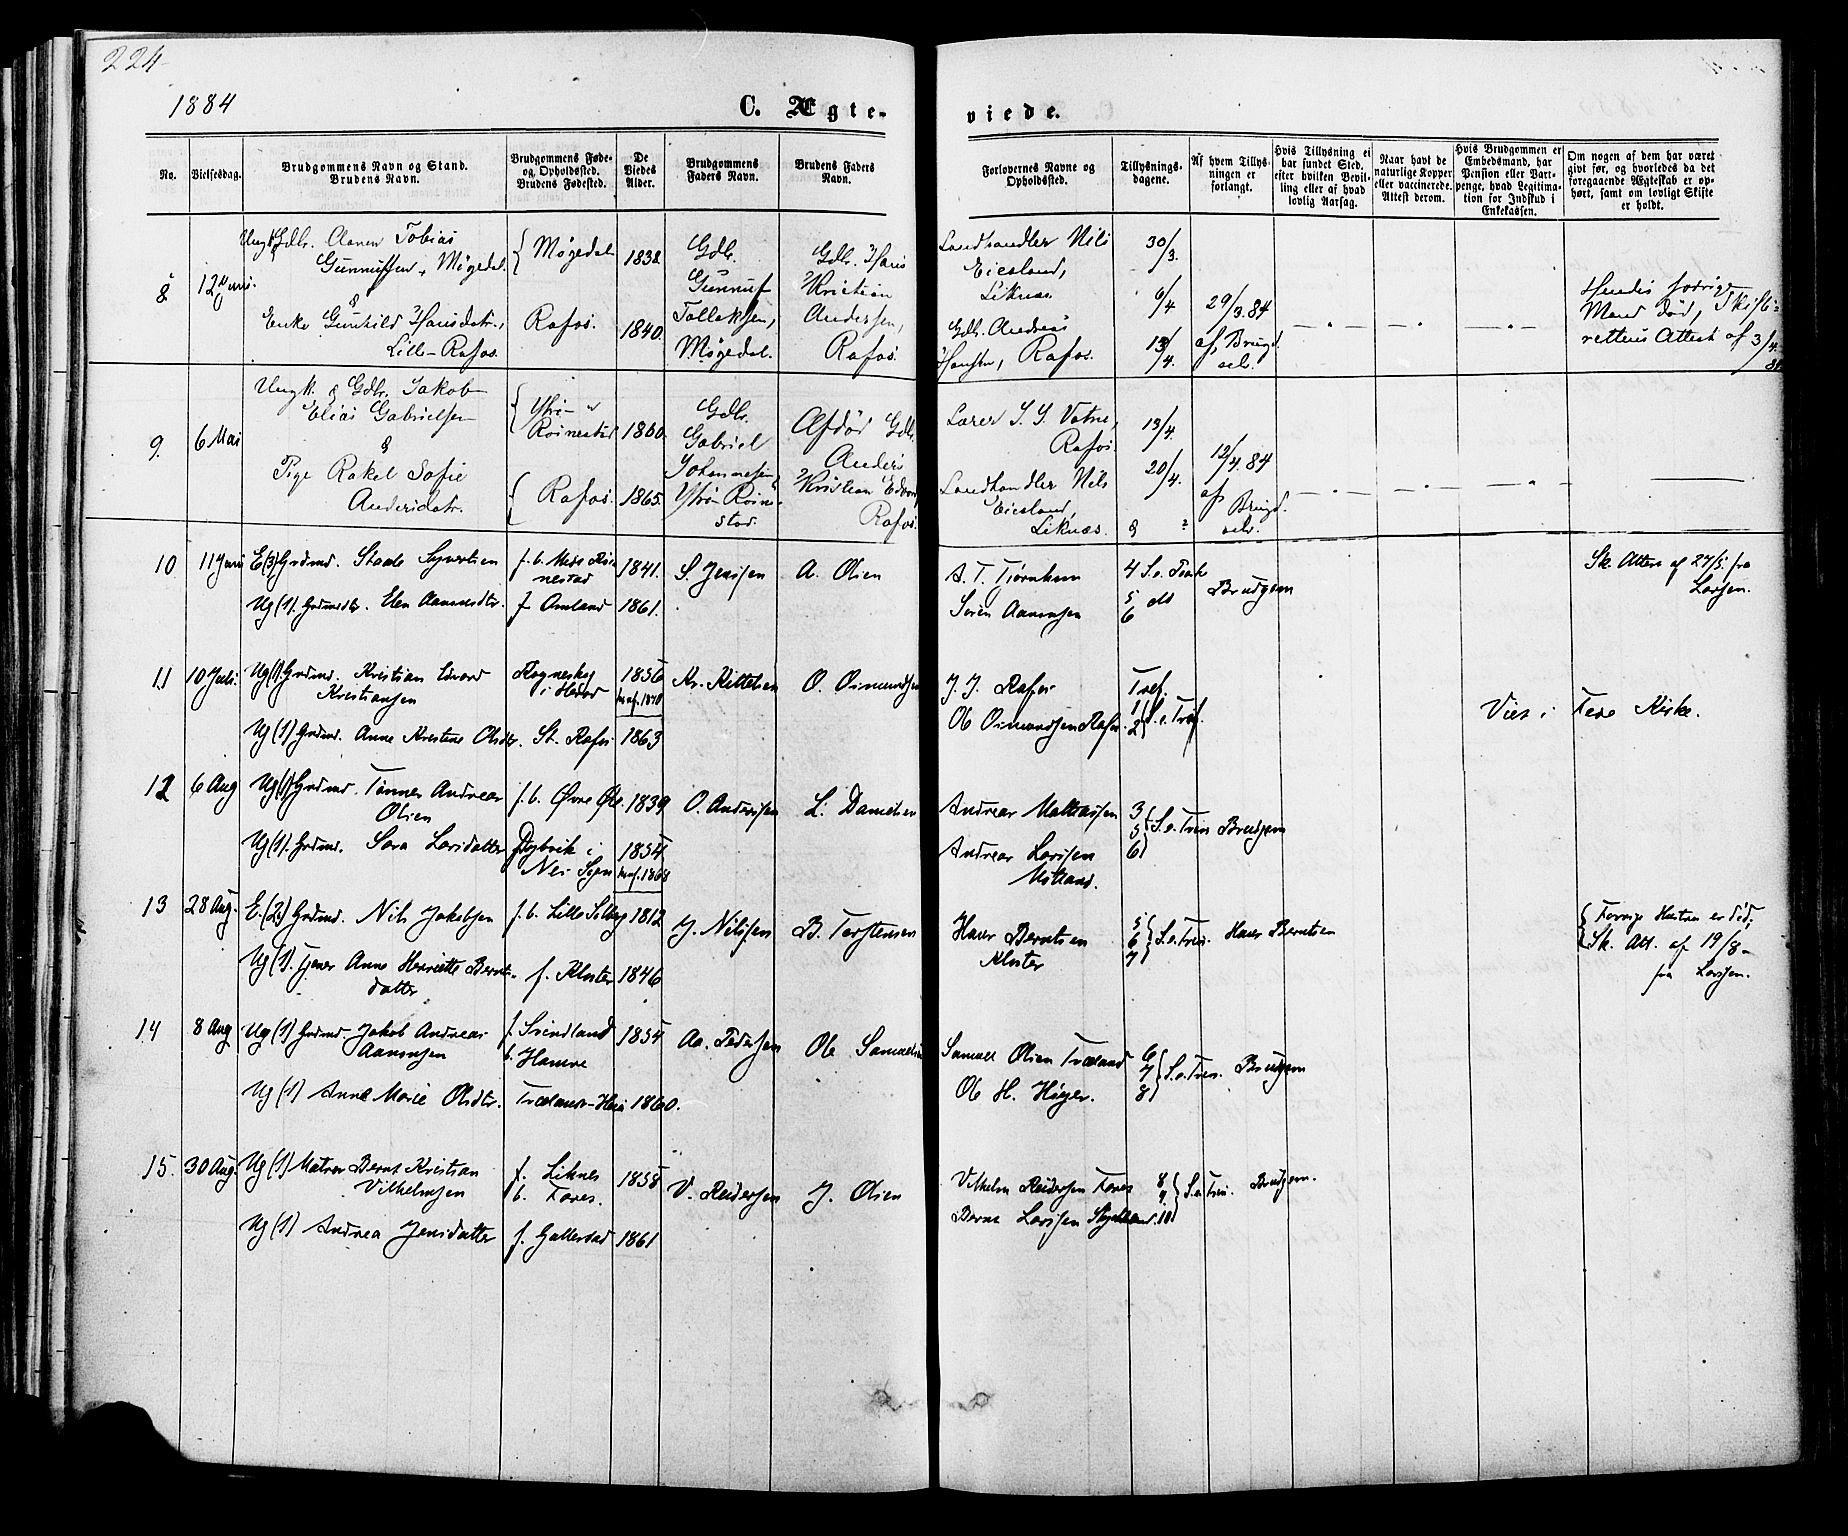 224
1884
C. Ægte-
viede.
No.
Vielsesdag.
Brudgommens Navn og Stand.
Brudens Navn.
Brudgommens Føde-
og Opholdssted.
Brudens Fødested.
De
Viedes
Alder.
Brudgommens
Faders Navn.
Brudens Faders
Navn.
Forlovernes Navne og
Opholdssted.
Tillysnings-
dagene.
Af hvem Tillys-
ningen er
forlangt.
Hvis Tillysning ei
har fundet Sted,
efter hvilken Bevil-
ling eller af hvad
lovlig Aarsag.
Naar havt de
naturlige Kopper
eller vaccinerede.
Attest derom.
Hvis Brudgommen er
Embedsmand, har
Pension eller Vart-
penge, hvad Legitima-
tion for Indskud i
Enkekassen.
Om nogen af dem har været
gift før, og hvorledes da det
foregaaende Ægteskab er op-
hørt, samt om lovligt Skifte
er holdt.
8
12 Juni.
Ungk. Gdbr. Aanen Tobias
Gunnufsen, Møgedal.
&
Enke Gunhild Hansdatr.,
Lille-Rafos.
Møgedal
Rafos.
1838
1840.
Gdbr.
Gunnuf
Tollaksen,
Møgedal.
Gdbr. Hans
Kristian
Andersen,
Rafos.
Landhandler Nils
Eiesland,
Liknæs.
Gdbr. Andreas
Hansen, Rafos.
30/3.
6/4
13/4.
29/3.84
af Brudg.
selv.
Hendes forrige
Mand død, Skifte-
rettens Attest af 3/4.
84
9.
6 Mai
Ungk. & Gdbr. Jakob
Elias Gabrielsen
&
Pige Rakel Sofie
Andersdatr.
Ytre-
Roinestad
Rafos.
1860.
1865.
Gdbr.
Gabriel
Johannesen,
Ytre Roine-
stad.
Afdød Gdbr.
Anders
Kristian
Rafos.
Lærer S. S. Vatne,
Rafos.
Landhandler Nils
Eiesland,
Liknæs.
13/4.
20/4.
12/4.84
af
Brudg.
selv.
10
11 Juni
E (3) Grdmd. Staale Syvertsen
Ug (1). Grdmdtr. Elen Aanensdtr.
f. b. Midt Røi-
nestad
f Omland
1841.
1861.
S. Jensen
A. Olsen
A. T. Tjørnhom
Søren Aanonsen
4 S. e. Paaske
5 do
6
Brudgom
Sk. Attest af 27/5 fra
Larsen.
11
10 Juli.
Ug (1) Grdmd. Kristian Edvard
Kristiansen
Ug (1) Grdmd. Anne Kristine Olsdtr.
Rogneskog
i Herad
St. Rafos
1856
konf. 1870
1863
Kr. Kittelsen
O. Osmundsen
J. J. Rafos
Ole Osmundsen Rafos
Tref.
1
2
S. e. Tref.
Viet i Feda Kirke.
12
6 Aug
Ug (1) Grdmd. Tønnes Andreas
Olsen
Ug (1). Grdmd. Sara Larsdatter
f. b. Øvre Øie.
Dybvik i
Nes Sogn
1839
1854
konf. 1868
O. Andersen
L. Danielsen
Andreas Mathiassen
Andreas Larsen
Mølland.
3
5
6
S. e. Tref.
Brudgom
13
28 Aug.
E. (2) Grdmd. Nils Jakobsen
Ug (1). tjener Anne Henriette Bernt-
datter
f. b. Lille Selberg
f. Kloster
1812
1846
J. Nilssen
B. Torstensen
Hans Berntsen
Kloster
5
6
7
S. e. Tref.
Hans Berntsen
Forrige Hustru er død;
Sk. Att. af 19/8-
fra Larsen.
14
8 Aug
Ug (1) Grdmd. Jakob Andreas
Aanonsen
Ug (1) Anne Marie Olsdtr.
f. Svindland
b. Hamre
Trælandshei
1854
1860.
Aa. Pedersen
Ole Samuelsen
Samuel Olsen Træland
Ole H. Høyer.
6
7
8
S. e. Tref.
Brudgom
15.
30 Aug.
Ug (1) Matros Bernt Kristian
Vilhelmsen
Ug (1) Andrea Jensdatter
f. Liknes
b. Fores.
f. Gullestad
1858
1861
V. Reiersen
J. Olsen
Vilhelm Reiersen Fores
Bernt Larsen
8
9
10
S. e. Tref.
Brudgom.